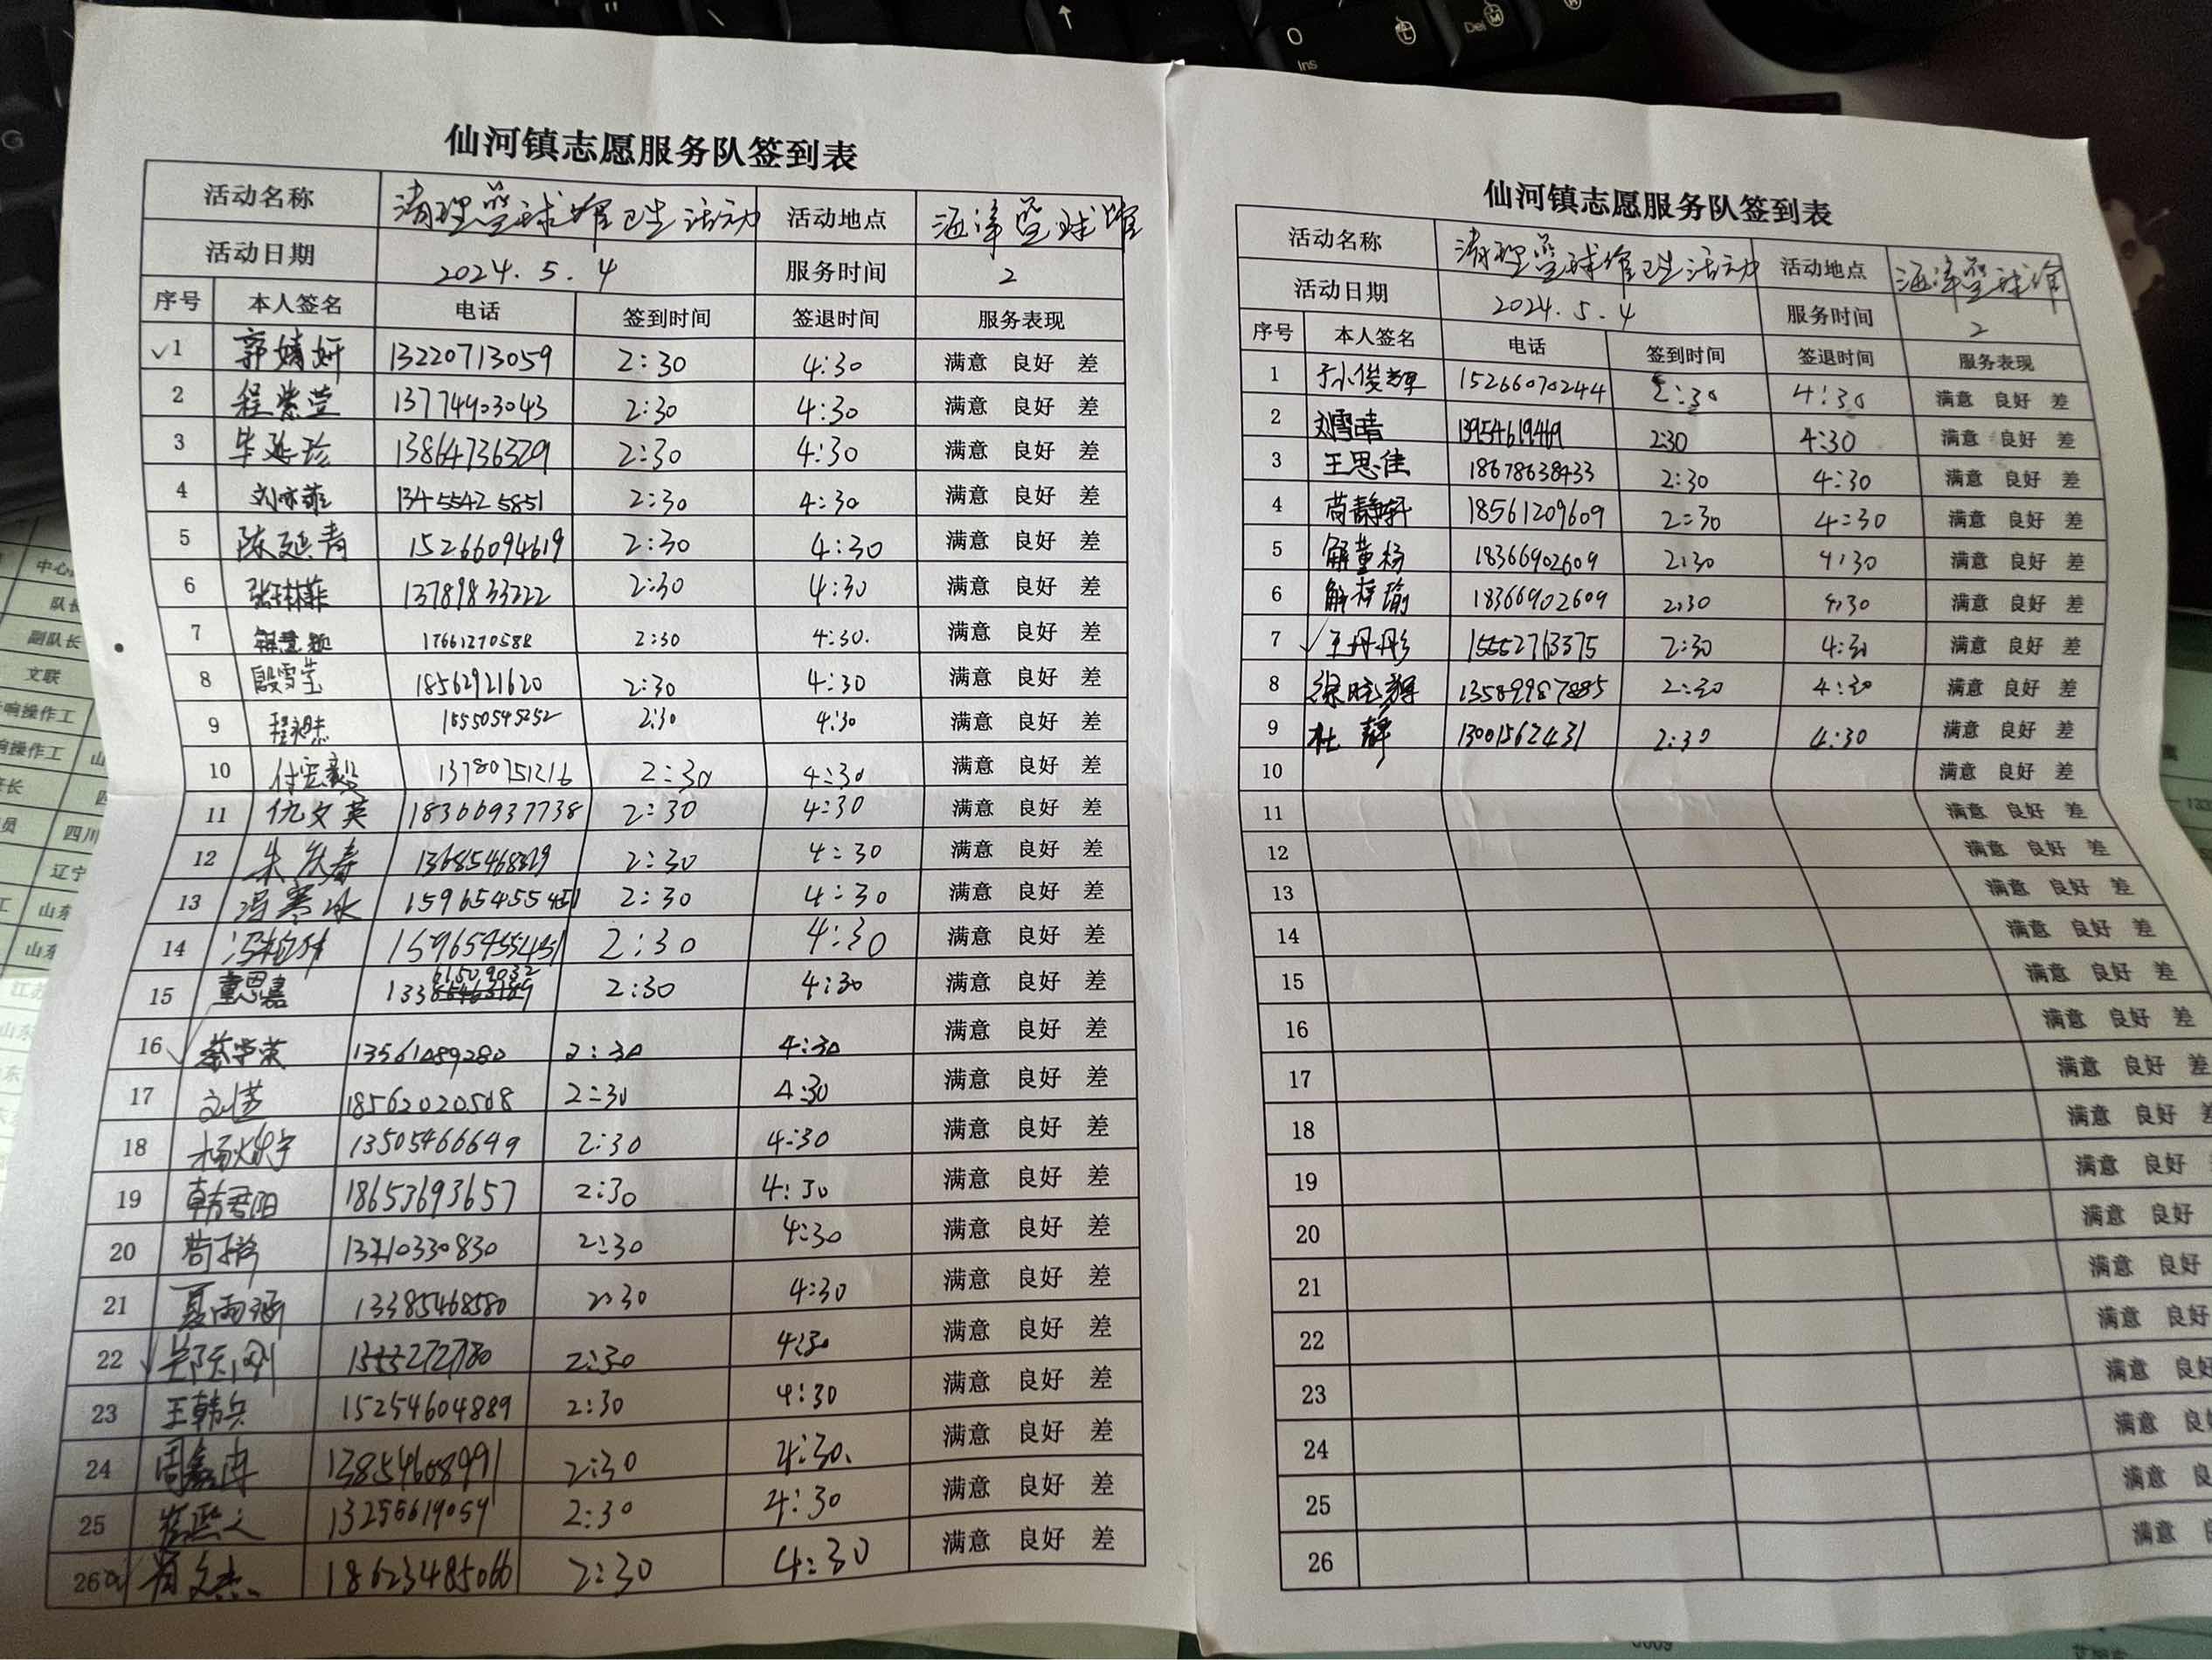 仙河镇志愿服务队签到表
活动名称 清理篮球馆卫生活动 活动地点 海洋篮球馆
活动日期 2024.5.4 服务时间 2
序号 本人签名 电话 签到时间 签退时间 服务表现
√1 郭婧妍 13220713059 2:30 4:30 满意 良好 差
2 程紫萱 13774903043 2:30 4:30 满意 良好 差
3 毕延珍 13864736329 2:30 4:30 满意 良好 差
4 刘亦菲 13455425851 2:30 4:30 满意 良好 差
5 陈延青 15266094619 2:30 4:30 满意 良好 差
6 张林菲 13789833222 2:30 4:30 满意 良好 差
7 17661270588 2:30 4:30. 满意 良好 差
8 殷雪莹 18562921620 2:30 4:30 满意 良好 差
9 18550545252 2:30 4:30 满意 良好 差
10 付宏毅 13780751216 2:30 4:30 满意 良好 差
11 仇文英 18366937738 2:30 4:30 满意 良好 差
12 13685468329 2:30 4:30 满意 良好 差
13 冯寒冰 15965455451 2:30 4:30 满意 良好 差
14 15965455451 2:30 4:30 满意 良好 差
15 董恩嘉 133 61509032 2:30 4:30 满意 良好 差
16√ 蔡学荣 13561089280 2:30 4:30 满意 良好 差
17 18562020508 2:30 4:30 满意 良好 差
18 13505466649 2:30 4:30 满意 良好 差
19 韩君阳 18653693657 2:30 4:30 满意 良好 差
20 2:30 4:30 满意 良好 差
21 夏雨涵 13385468580 2:30 4:30 满意 良好 差
22√ 2:30 4:30 满意 良好 差
23 王韩兵 15254604889 2:30 4:30 满意 良好 差
24 13854608991 2:30 4:30. 满意 良好 差
25 崔熙文 13255619059 2:30 4:30 满意 良好 差
26 18623485066 2:30 4:30 满意 良好 差
仙河镇志愿服务队签到表
活动名称 清理篮球馆卫生活动 活动地点 海洋篮球馆
活动日期 2024.5.4 服务时间 2
序号 本人签名 电话 签到时间 签退时间 服务表现
1 于小俊辉 15266070244 2:30 4:30 满意 良好 差
2 刘雪晴 13954619469 2:30 4:30 满意 良好 差
3 王思佳 18678638433 2:30 4:30 满意 良好 差
4 苟静轩 18561209609 2:30 4:30 满意 良好 差
5 解董杨 18366902609 2:30 4:30 满意 良好 差
6 解梓瑜 18366902609 2:30 4:30 满意 良好 差
7√ 王丹彤 15552763375 2:30 4:30 满意 良好 差
8 徐晓辉 13589987885 2:30 4:30 满意 良好 差
9 杜静 13001562431 2:30 4:30 满意 良好 差
10 满意 良好 差
11 满意 良好 差
12 满意 良好 差
13 满意 良好 差
14 满意 良好 差
15 满意 良好 差
16 满意 良好 差
17 满意 良好 差
18 满意 良好 差
19 满意 良好
20 满意 良好
21 满意 良好
22 满意 良好
23 满意 良好
24 满意 良
25 满意 良
26 满意
中心
队长
副队长
文联
响操作工
响操作工 山
长
员 四川
辽宁
工 山东
山东